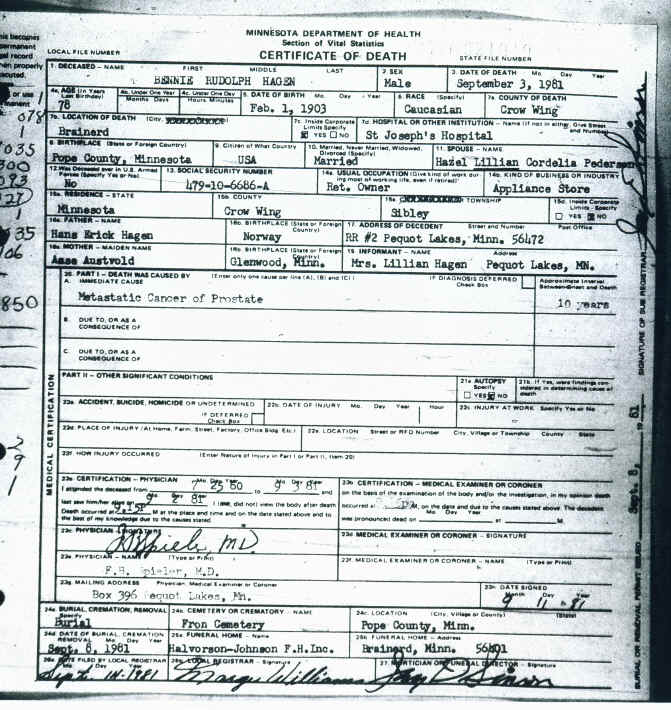 MINNESOTA DEPARTMENT OF HEALTH
Section of Vital Statistics
CERTIFICATE OF DEATH
LOCAL FILE NUMBER STATE FILE NUMBER
1. DECEASED – NAME FIRST MIDDLE LAST 2. SEX 3. DATE OF DEATH Mo. Day Year
BENNIE RUDOLPH HAGEN Male September 3, 1981
4a. AGE (In Years Last Birthday) 4b. Under One Year Months Days 4c. Under One Day Hours Minutes 5. DATE OF BIRTH Mo. Day Year 6. RACE (Specify) 7a. COUNTY OF DEATH
78 Feb. 1, 1903 Caucasian Crow Wing
7b. LOCATION OF DEATH (City, 7c. Inside Corporate Limits Specify 7d. HOSPITAL OR OTHER INSTITUTION – Name (If not in either, Give Street and Number)
Brainerd YES NO St Joseph's Hospital
8. BIRTHPLACE (State or Foreign Country) 9. Citizen of What Country 10. Married, Never Married, Widowed, Divorced (Specify) 11. SPOUSE – NAME
Pope County, Minnesota USA Married Hazel Lillian Cordelia Pederson
12. Was Deceased ever in U.S. Armed Forces (Specify Yes or No) 13. SOCIAL SECURITY NUMBER 14a. USUAL OCCUPATION (Give kind of work during most of working life, even if retired) 14b. KIND OF BUSINESS OR INDUSTRY
No 479-10-6686-A Ret. Owner Appliance Store
15a. RESIDENCE – STATE 15b. COUNTY TOWNSHIP 15d. Inside Corporate Limits - Specify
Minnesota Crow Wing Sibley YES NO
16a. FATHER – NAME 16b. BIRTHPLACE (State or Foreign Country) 17. ADDRESS OF DECEDENT Street and Number Post Office
Hans Erick Hagen Norway RR #2 Pequot Lakes, Minn. 56472
18a. MOTHER – MAIDEN NAME 18b. BIRTHPLACE (State or Foreign Country) 19. INFORMANT – NAME Address
Austvold Glenwood, Minn. Mrs. Lillian Hagen Pequot Lakes, MN.
20. PART I – DEATH WAS CAUSED BY (Enter only one cause per line (A), (B) and (C)) IF DIAGNOSIS DEFERRED Check Box Approximate Interval Between Onset and Death
A. IMMEDIATE CAUSE
Metastatic Cancer of Prostate 10 years
B. DUE TO, OR AS A CONSEQUENCE OF
C. DUE TO, OR AS A CONSEQUENCE OF
PART II – OTHER SIGNIFICANT CONDITIONS 21a. AUTOPSY Specify YES NO 21b. If Yes, were findings considered in determining cause of death
22a. ACCIDENT, SUICIDE, HOMICIDE OR UNDETERMINED IF DEFERRED Check Box 22b. DATE OF INJURY Mo. Day Year Hour 22c. INJURY AT WORK Specify Yes or No
22d. PLACE OF INJURY (At Home, Farm, Street, Factory, Office Bldg. Etc.) 22e. LOCATION Street or RFD Number City, Village or Township County State
22f. HOW INJURY OCCURRED (Enter Nature of Injury in Part I or Part II, Item 20)
MEDICAL CERTIFICATION
23a. CERTIFICATION – PHYSICIAN Mo. Day Year 23b. CERTIFICATION – MEDICAL EXAMINER OR CORONER
I attended the deceased from 7 25 50 to 9 3 81 and on the basis of the examination of the body and/or the investigation, in my opinion death
last saw him/her alive on 9 2 81 I (did, did not) view the body after death occurred at M, on the date and due to the causes stated above. The decedent
Death occurred at M at the place and time and on the date stated above and to the best of my knowledge due to the causes stated. was pronounced dead on at M.
23c. PHYSICIAN 23d. MEDICAL EXAMINER OR CORONER – SIGNATURE
Spieler MD
23e. PHYSICIAN – NAME (Type or Print) 23f. MEDICAL EXAMINER OR CORONER – NAME (Type or Print)
Spieler, M.D.
23g. MAILING ADDRESS Physician, Medical Examiner or Coroner 23h. DATE SIGNED Month Day Year
Box 396 Pequot Lakes, Mn. 9 11 81
24a. BURIAL, CREMATION, REMOVAL Specify 24b. CEMETERY OR CREMATORY – NAME 24c. LOCATION (City, Village or County) (State)
Burial Fron Cemetery Pope County, Minn.
24d. DATE OF BURIAL, CREMATION REMOVAL Mo. Day Year 25a. FUNERAL HOME – Name 25b. FUNERAL HOME – Address
Sept. 8, 1981 Halvorson-Johnson F.H.Inc. Brainerd, Minn. 56401
26a. DATE FILED BY LOCAL REGISTRAR 26b. LOCAL REGISTRAR – Signature 27. MORTICIAN OR FUNERAL DIRECTOR – Signature
Sept. 14-1981 Marge Williams
SIGNATURE OF SUB REGISTRAR
BURIAL OR REMOVAL PERMIT ISSUED Sept. 8, 19 81